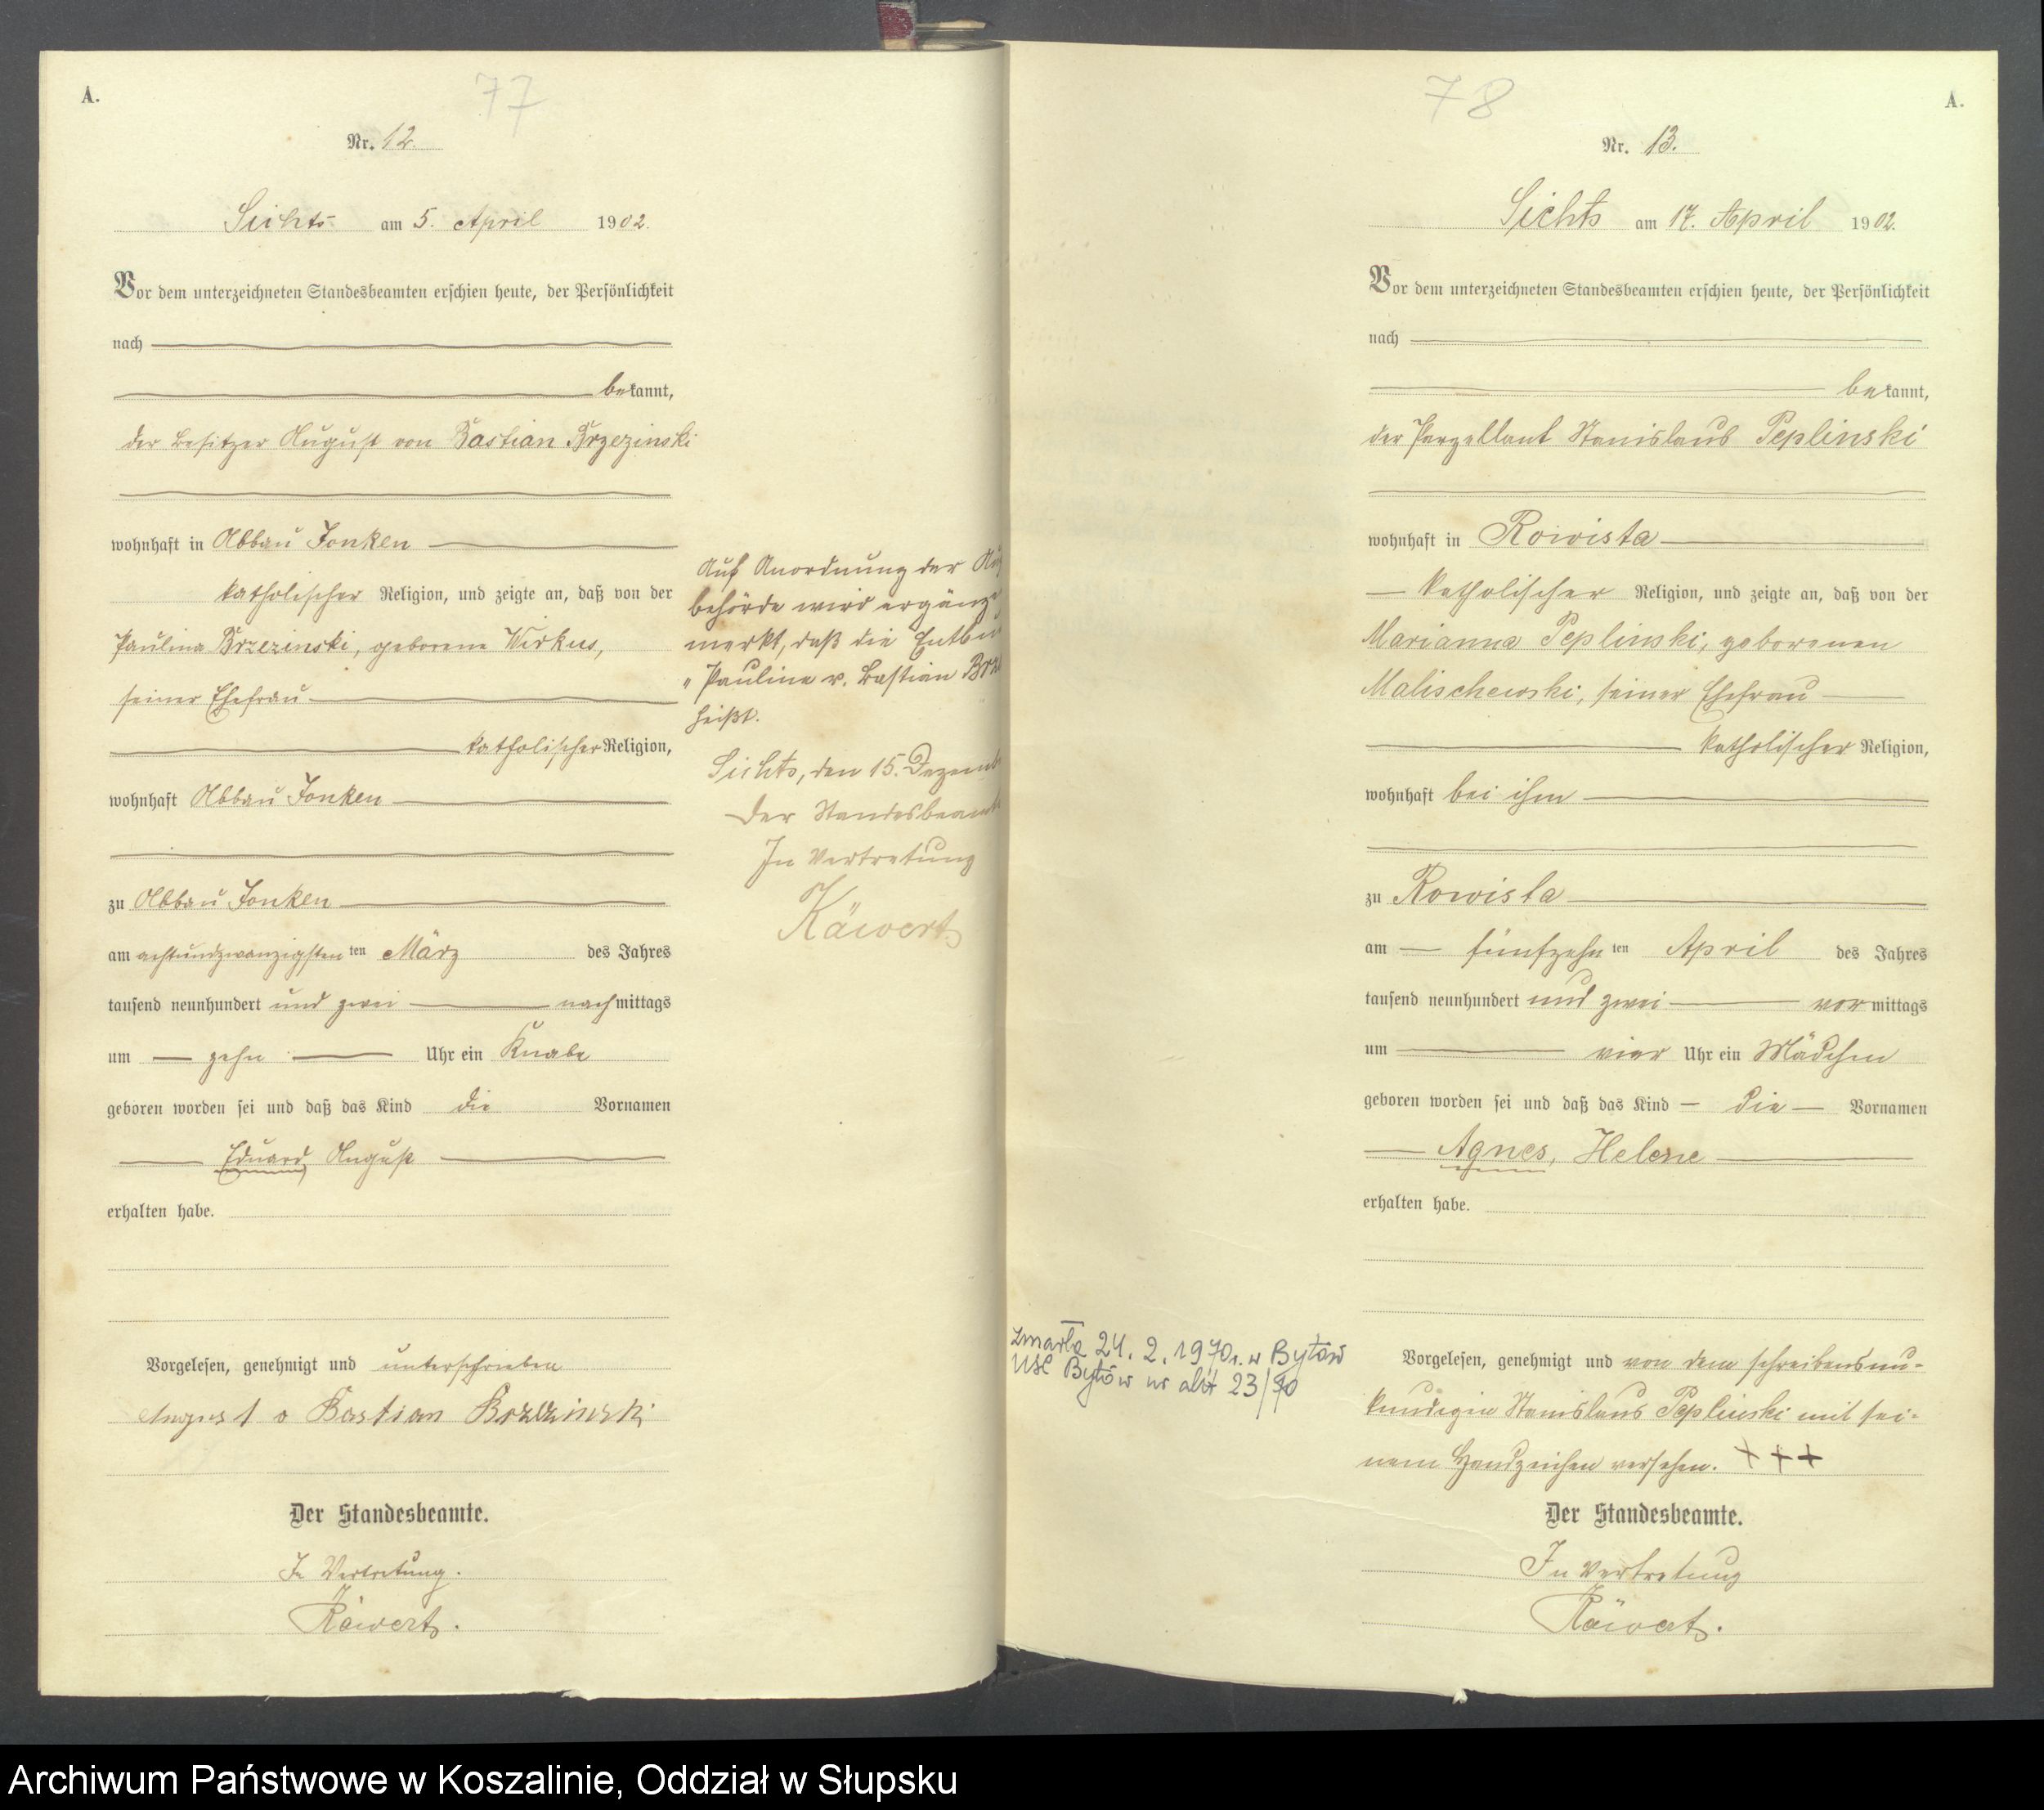 A.
77
Nr. 12.
Sichts am 5. April 1902.
Vor dem unterzeichneten Standesbeamten erschien heute, der Persönlichkeit
nach
bekannt,
der Besitzer August von Bastian Brzezinski
wohnhaft in Abbau Jonken
katholischer Religion, und zeigte an, daß von der
Paulina Brzezinski, geborene Wirkus,
seiner Ehefrau
katholischer Religion,
wohnhaft Abbau Jonken
zu Abbau Jonken
am achtundzwanzigsten ten März des Jahres
tausend neunhundert und zwei nachmittags
um zehn Uhr ein Knabe
geboren worden sei und daß das Kind die Vornamen
Eduard August
erhalten habe.
Vorgelesen, genehmigt und unterschrieben
August v Bastian Brzezinski
Der Standesbeamte.
In Vertretung.
Räwert.
Auf Anordnung der
behörde wird ergänz
merkt, daß die Entbu
"Pauline v. Bastian Brz
heißt.
Sichts, den 15. Dezemb
Der Standesbeamt
In Vertretung
Räwert
A.
78
Nr. 13.
Sichts am 17. April 1902.
Vor dem unterzeichneten Standesbeamten erschien heute, der Persönlichkeit
nach
bekannt,
der Parzellant Stanislaus Peplinski
wohnhaft in Rowista
katholischer Religion, und zeigte an, daß von der
Marianna Peplinski, geborenen
Malischewski, seiner Ehefrau
katholischer Religion,
wohnhaft bei ihm
zu Rowista
am fünfzehn ten April des Jahres
tausend neunhundert und zwei vormittags
um vier Uhr ein Mädchen
geboren worden sei und daß das Kind die Vornamen
Agnes, Helene
erhalten habe.
Vorgelesen, genehmigt und von dem schreibensun-
kundigen Stanislaus Peplinski mit sei-
nem Handzeichen versehen. +++
Der Standesbeamte.
In Vertretung
Räwert.
zmarła 24. 2. 1970 r. w Bytów
USC Bytów nr akt 23/70
Archiwum Państwowe w Koszalinie, Oddział w Słupsku